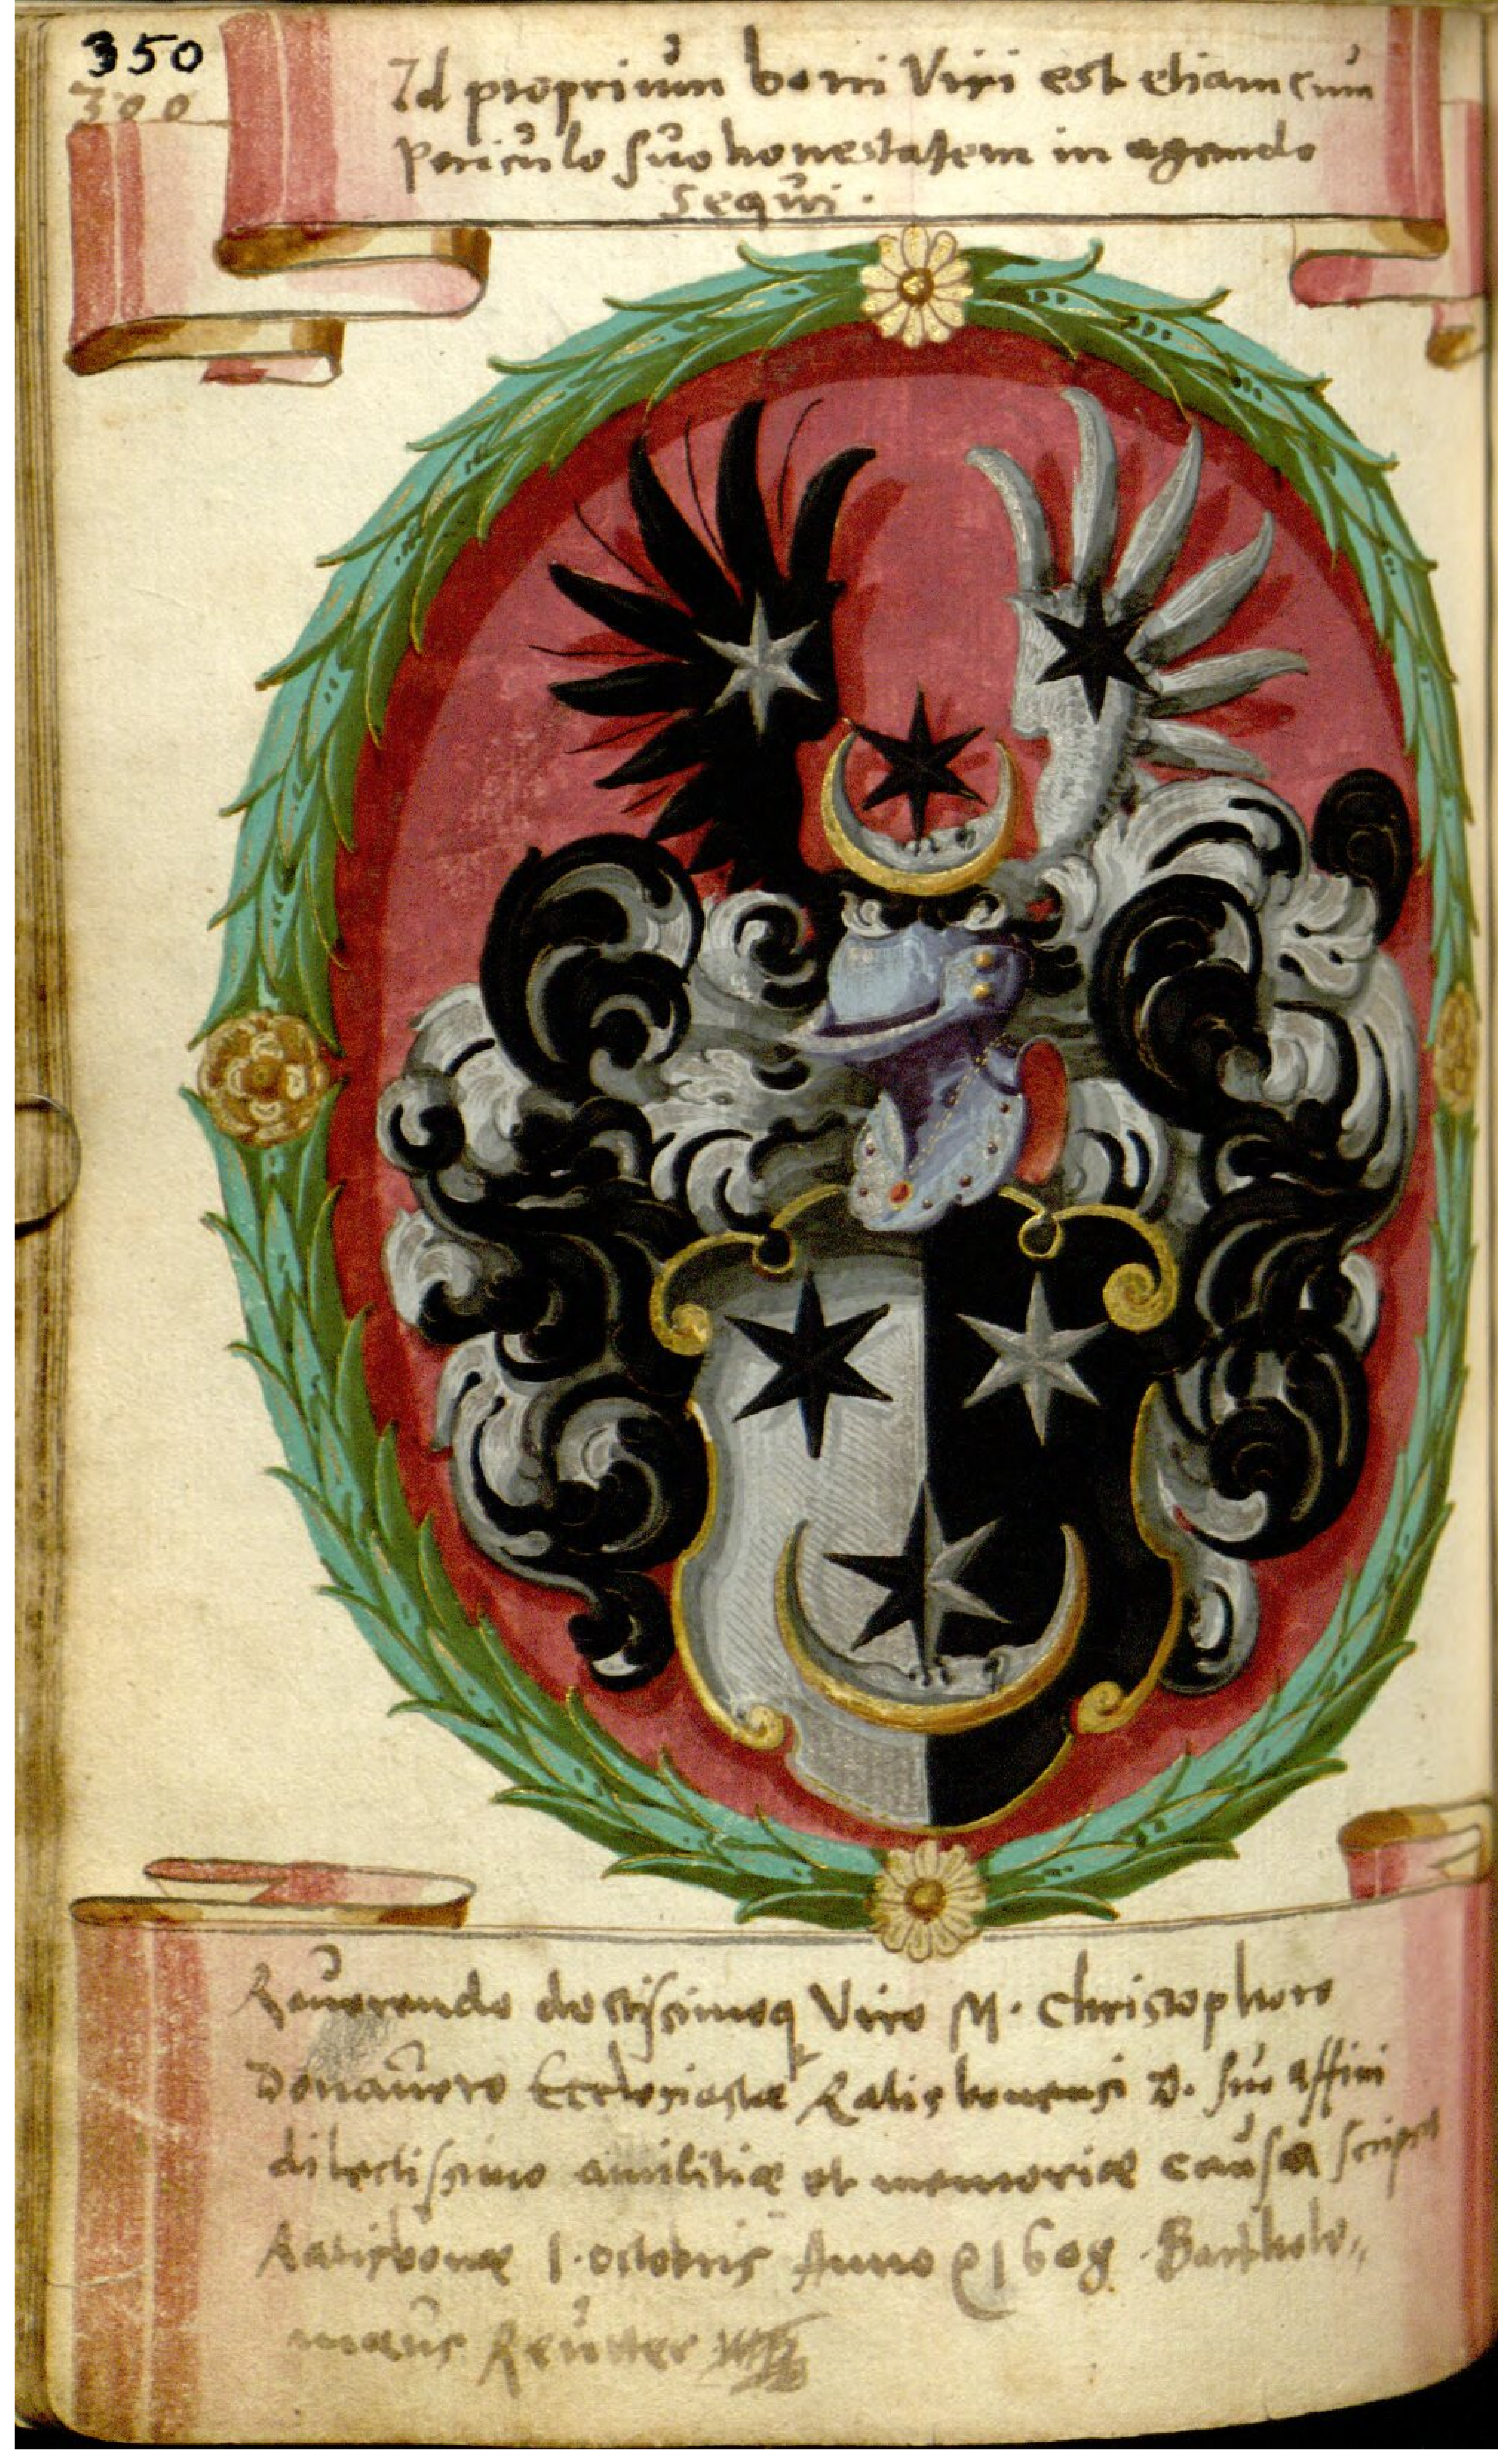 350
300
Id proprium boni Viri est etiam cum
periculo suo honestatem in agendo
sequi.
Reuerendo doctissimoq Viro M. Christophoro
Donauero Ecclesiastæ Ratisbonensi D. suo affini
dilectissimo amicitiæ et memoriæ causa scripsit
Ratisbonæ 1. octobris Anno 1608. Bartholo,,
mæus Reutter